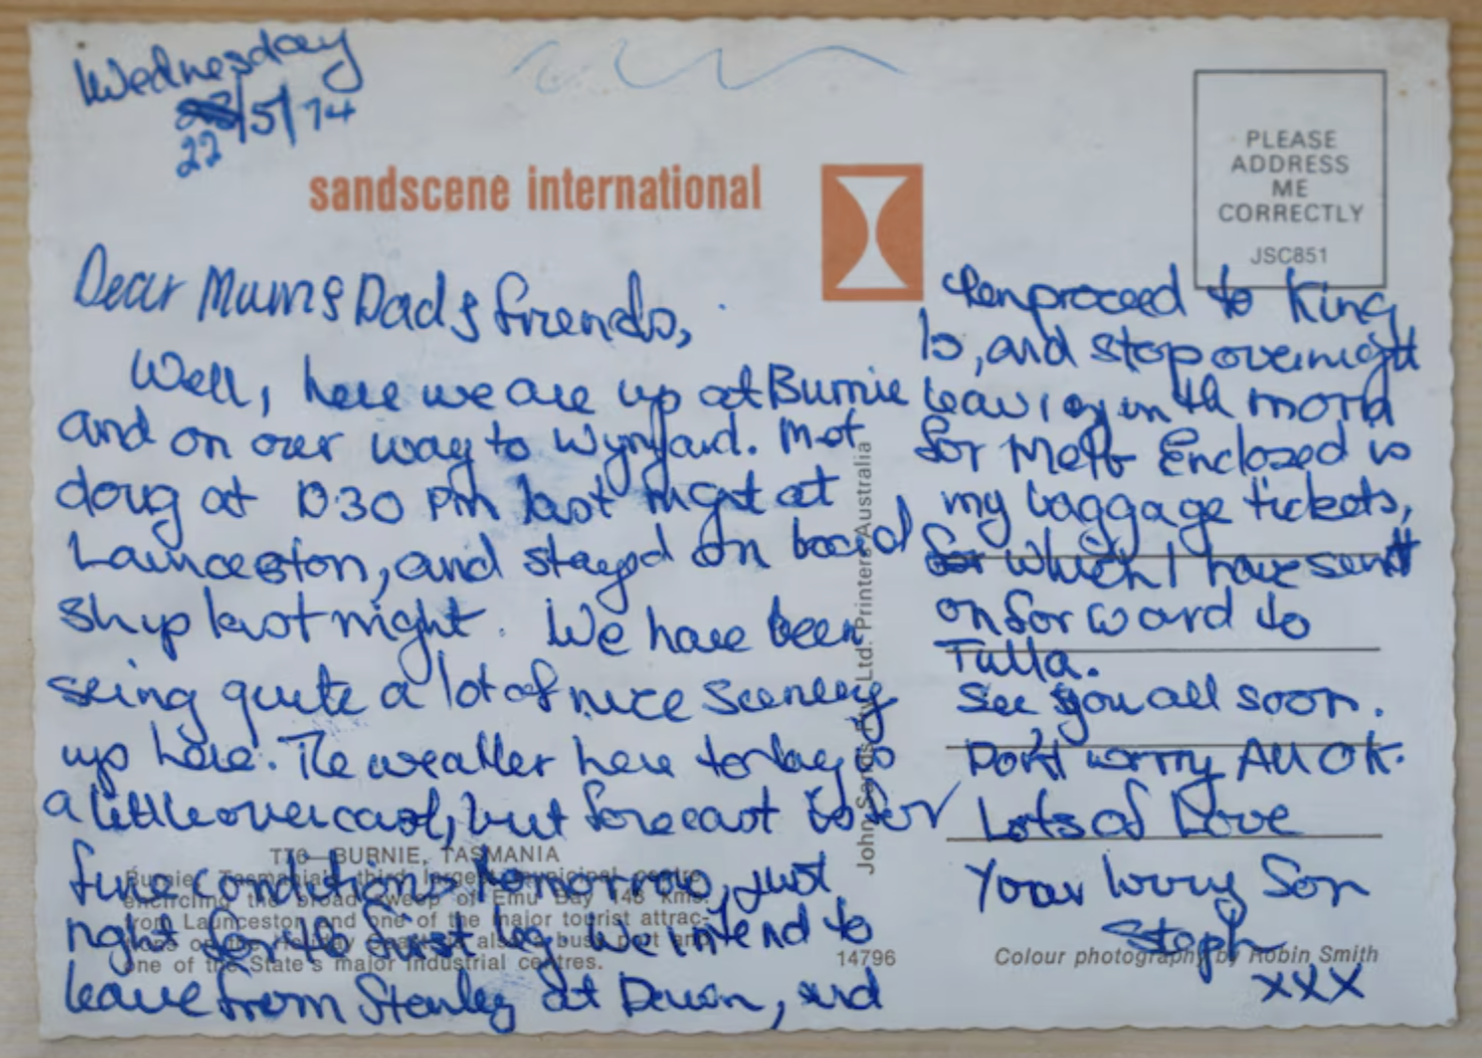 Wednesday
22/5/74
sandscene international
PLEASE
ADDRESS
ME
CORRECTLY
JSC851
Dear Mum & Dad & friends,
Well, here we are up at Burnie
and on our way to Wynyard. Met
doug at 10 30 PM last night at
Launceston, and stayed on board
ship last night. We have been
seing quite a lot of nice scenery
up here. The weather here today is
a little overcast, but forecast is for
fine conditions tomorrow, just
right for the first leg. We intend to
leave from Stanley at Dawn, and
then proceed to King
Is, and stop overnight
leaving in th morn
for Melb Enclosed is
my baggage tickets,
which I have sent
on forward to
Tulla.
See you all soon.
Don't worry All OK.
Lots of Love
Your loving Son
Steph
XXX
T70—BURNIE, TASMANIA
Burnie, Tasmania's third largest municipal centre,
encircling the broad sweep of Emu Bay 148 kms.
from Launceston and one of the major tourist attrac-
tions on the Holiday Coast is also a busy port and
one of the State's major industrial centres.
14796
Colour photography by Robin Smith
John Sands Pty. Ltd. Printers Australia